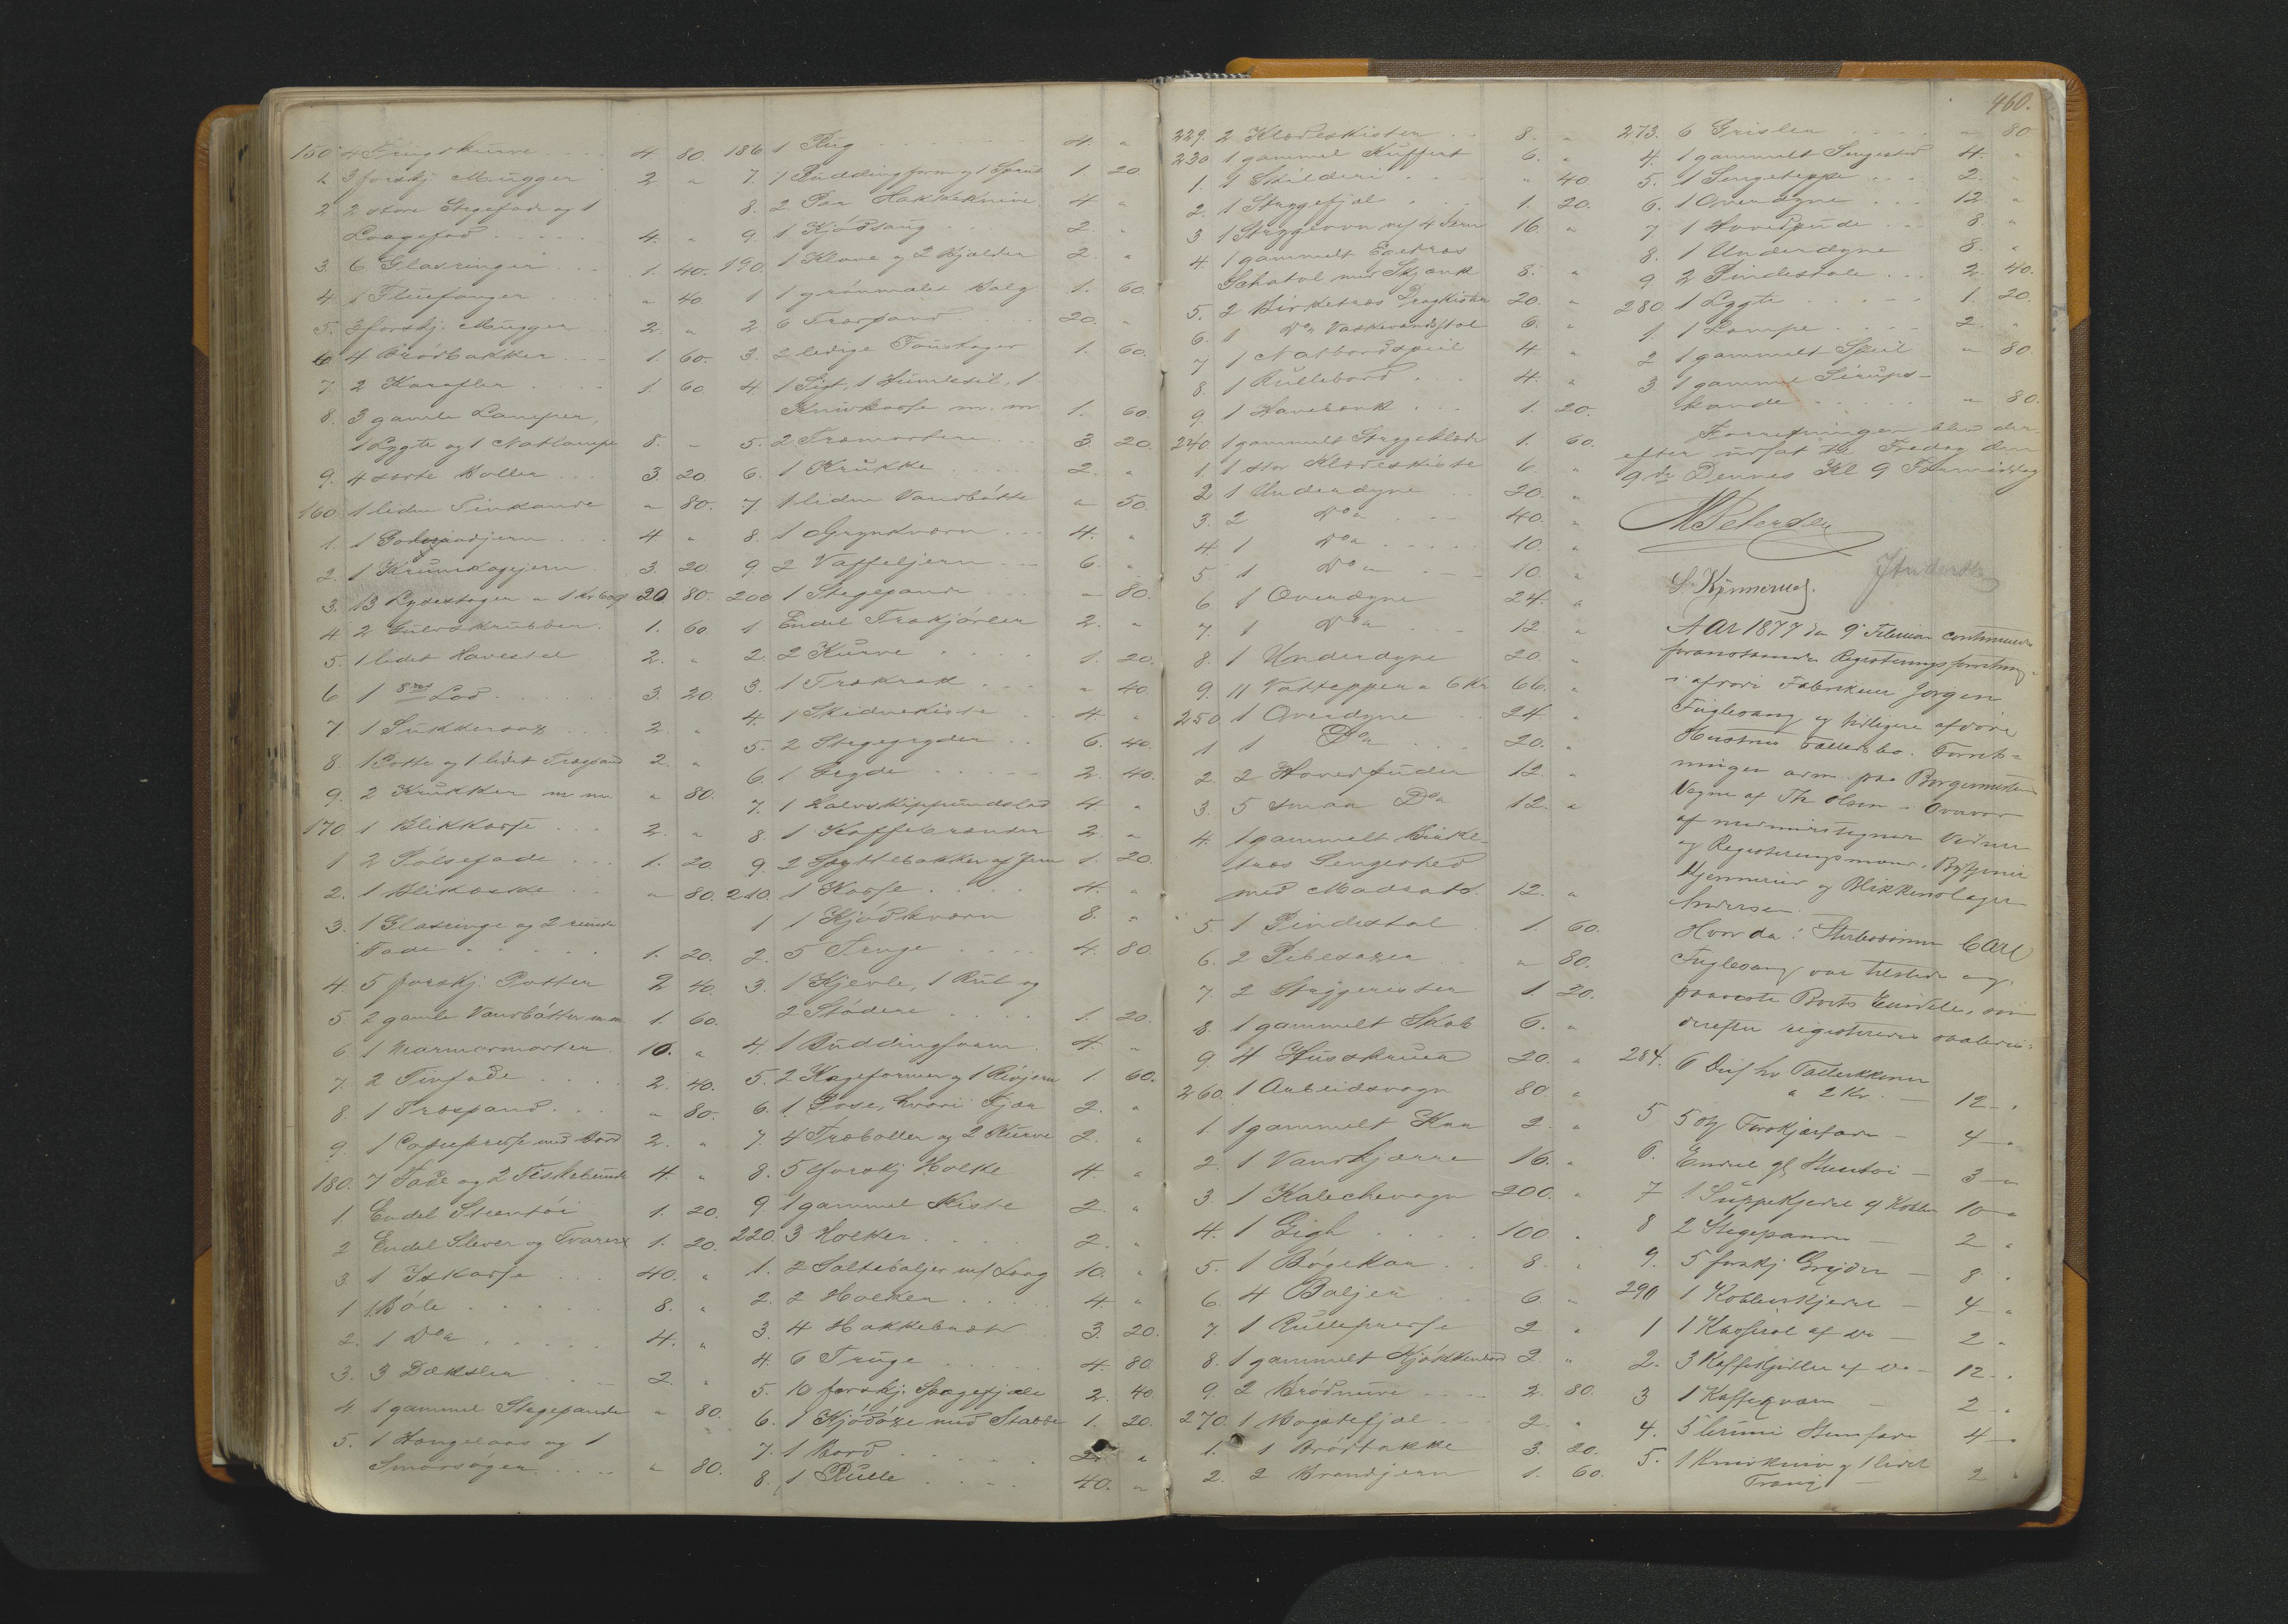 460.
150 4 Tingskurve 4 80.
1 3 forskj. Mugger 2 "
2 2 store Stegefade og 1
Laagefad 4. "
3. 6 Glasringer 1. 40.
4. 1 Fluefanger " 40
5. 3 forskj. Mugger 2. "
6 4 Brödbakker 1. 60.
7. 2 Karafler 1. 60
8. 3 gamle Lamper,
1 Lygte og 1 Natlampe 8. –
9. 4 sorte Boller 3. 20
160. 1 liden Tinkande " 80.
1. 1 Goderaadjern 4 "
2. 1 Krumkagejern 3. 20
3. 13 Lysestager a 1 Kr 60 20. 80.
4 2 Gulvskrubber. 1. 60
5. 1 lidet Havested 2. "
6 1 Lod 3. 20
7. 1 Sukkersax 2. "
8. 1 Potte og 1 lidet Træspand 2. "
9. 2 Krukker m m. " 80.
170 1 Blikkasse 2. "
1 2 Pölsefade 1. 20
2. 1 Blikæske " 80.
3. 1 Glasringe og 2 runde
Fade 1. 20.
4. 5 forskj. Potter 2 40.
5 2 gamle Vandbötter m.m. 1. 60.
6 1 Marmormorter 10. "
7. 2 Tinfade 2. 40.
8. 1 Træspand " 80.
9. 1 Copiepresse med Bord 2. "
180. 7 Fade og 2 Fiskebunde 4. "
1. Endel Steentöi 1. 20.
2 Endel Slever og Tvarer 1. 20.
3. 1 Iskasse 40. "
1 1 Böle 8. "
2. 1 Do 4. "
3. 3 Dæksler 2. "
4. 1 gammel Stegepande " 80.
5. 1 Hængelaas og 1
Smörsöger " 80.
186 1 Rug 4. "
7. 1 Puddingform og 1 Spand 1. 20
8. 2 Par Hakkeknive 4 "
9. 1 Kjödsaug 2. "
190. 1 Klave og 2 Bjælder 2. "
1 1 grönmalet Balg 1. 60.
2. 6 Træspand 20. "
3. 2 ledige Foustager 1. 60.
4. 1 Sigt, 1 Humlesil, 1
Knivkasse m. m 1. 60.
5. 2 Træmortere 3. 20.
6. 1 Krukke 2. "
7 1 liden Vandbötte " 50.
8. 1 Grynkværn 4. "
9. 2 Vaffeljern 6. "
200 1 Stegepande – 80.
1 Endel Trækjörler 2. "
2. 2 Kurve 1. 20.
3. 1 Trækrak " 40
4. 1 Skidnekiste 4 "
5. 2 Stegegryder 6. 40.
6. 1 Gryde 2. 40.
7. 1 Halvskippundslod 4 "
8. 1 Kaffebrænder 2. "
9. 2 Spyttebakker af Jern 1. 20.
210. 1 Kasse 4. "
1 1 Kjödkværn 8. "
2. 5 Senge 4. 80.
3. 1 Kjevle, 1 Rul og
2 Stödere 1. 20.
4. 1 Buddingform 4. "
5. 2 Kageformer og 1 Rivjern 1. 60.
6. 1 Pose, hvori Fjær 2. "
7. 4 Træboller og 2 Kurve 2. "
8. 5 forskj. Holke 4. "
9. 1 gammel Kiste 2. "
220. 3 Holker 2. "
1. 2 Saltebaljer m/ Laag 10. "
2. 2 Holker 4 "
3. 4 Hakkebræt 3. 20.
4. 6 Truge 4. 80
5. 10 forskj. Spægefjæle 2. 40
6. 1 Kjödöxe med Stabbe 1. 20.
7. 1 Bord 2. "
8. 1 Rulle 40. "
229. 2 Klædeskister 8. "
230 1 gammel Kuffert 6. "
1. 1 Skilderi " 40.
2. 1 Strygefjæl 1. 20.
3 1 Strygeovn m/ 4 Jern 16. "
4. 1 gammelt Egetræs
Schatol med Skjænk 8. "
5. 2 Birketræs Dragkister 20. "
6. 1 Do Vaskevandstol 6. "
7 1 Natbordspeil 4 "
8. 1 Rullebord 4. "
9. 1 Havebænk 1. 20.
240. 1 gammelt Stryggeklæde 1. 60.
1. 1 stor Klædeskiste 6. "
2 1 Underdyne 20. "
3. 2 Do 40. "
4 1 Do 10. "
5. 1 Do 10. "
6 1 Overdyne 24. "
7. 1 Do 12. "
8. 1 Underdyne 20 "
9. 11 Vattepper a 6 Kr 66. "
250 1 Overdyne 24. "
1 1 Do 20. "
2. 2 Hovedpuder 12. "
3. 5 smaa Do 12. "
4. 1 gammelt Birke-
træs Sengested
med Madrats. 12. "
5. 1 Pindestol 1. 60.
6. 2 Bibelsaxer " 80.
7. 2 Strygerister 1. 20.
8. 1 gammelt Skab 6. "
9. 4 Husskruer 20. "
260. 1 Arbeidsvogn 80. "
1. 1 gammelt Kar 2. "
2. 1 Vandkjærre 16. "
3. 1 Kalechevogn 200. "
4. 1 Gigh 100 "
5. 1 Bögekar 8. "
6. 4 Baljer 6. "
7. 1 Rullepresse 2 "
8. 1 gammelt Kjökkenbord 2. "
9. 2 Brödruve 2. 80.
270. 1 Bagstefjæl 2. "
1. 1 Brödbakke 3. 20.
2. 2 Brandjern 1. 60.
273. 6 Grisler " 80
4. 1 gammelt Sengested 4. "
5. 1 Sengeteppe 2. "
6. 1 Overdyne 12. "
7 1 Hovedpude 8. "
8. 1 Underdyne 8. "
9 2 Pindestole 2. 40.
280 1 Lygte 1. 20.
1. 1 Lampe 2. "
2 1 gammelt Speil " 80.
3. 1 gammel Sirups-
kande " 80.
Forretningen blev der-
efter udsat til Fredag den
9de Dennes Kl 9 Formiddag
M Petersen
J Andersen
S. Kjennerud.
Aar 1877 den 9 Februar continuerede
foranstaaende Registreringsforretning
i afdöde Fabrikeier Jörgen
Fuglesang og tidligere afdöde
Hustrus Fællesbo. Forret-
ningen adm. paa Borgermesterens
Vegne af Th Olsen i Overvær
af medundertegnede Vidner
og Registreringsmænd, Bytjener
Kjennerud og Blikkenslager
Andersen.
Hvorda: Sterbosönnen Carl
Fuglesang var tilstede og
paaviste Boets Eiendele, som
derefter registreredes saaledes:
284. 6 Dus hv Tallerkkener
a 2 Kr. 12 "
5 5 Forskjærfade 4 "
6. Endel gl Steentöi 3 "
7 1 Suppekjedel af Kobber 10 "
8 2 Stegepander 2 "
9. 5 forskj Gryder 8 "
290 1 Kobberkjedel 4 "
1 1 Kasserol af do 2 "
2. 3 Kaffekjedler af do 12 "
3 1 Kaffeqværn 2 "
4. 5 brune Steenfade 4 "
5. 1 og 1 lidet
Traug 2 "